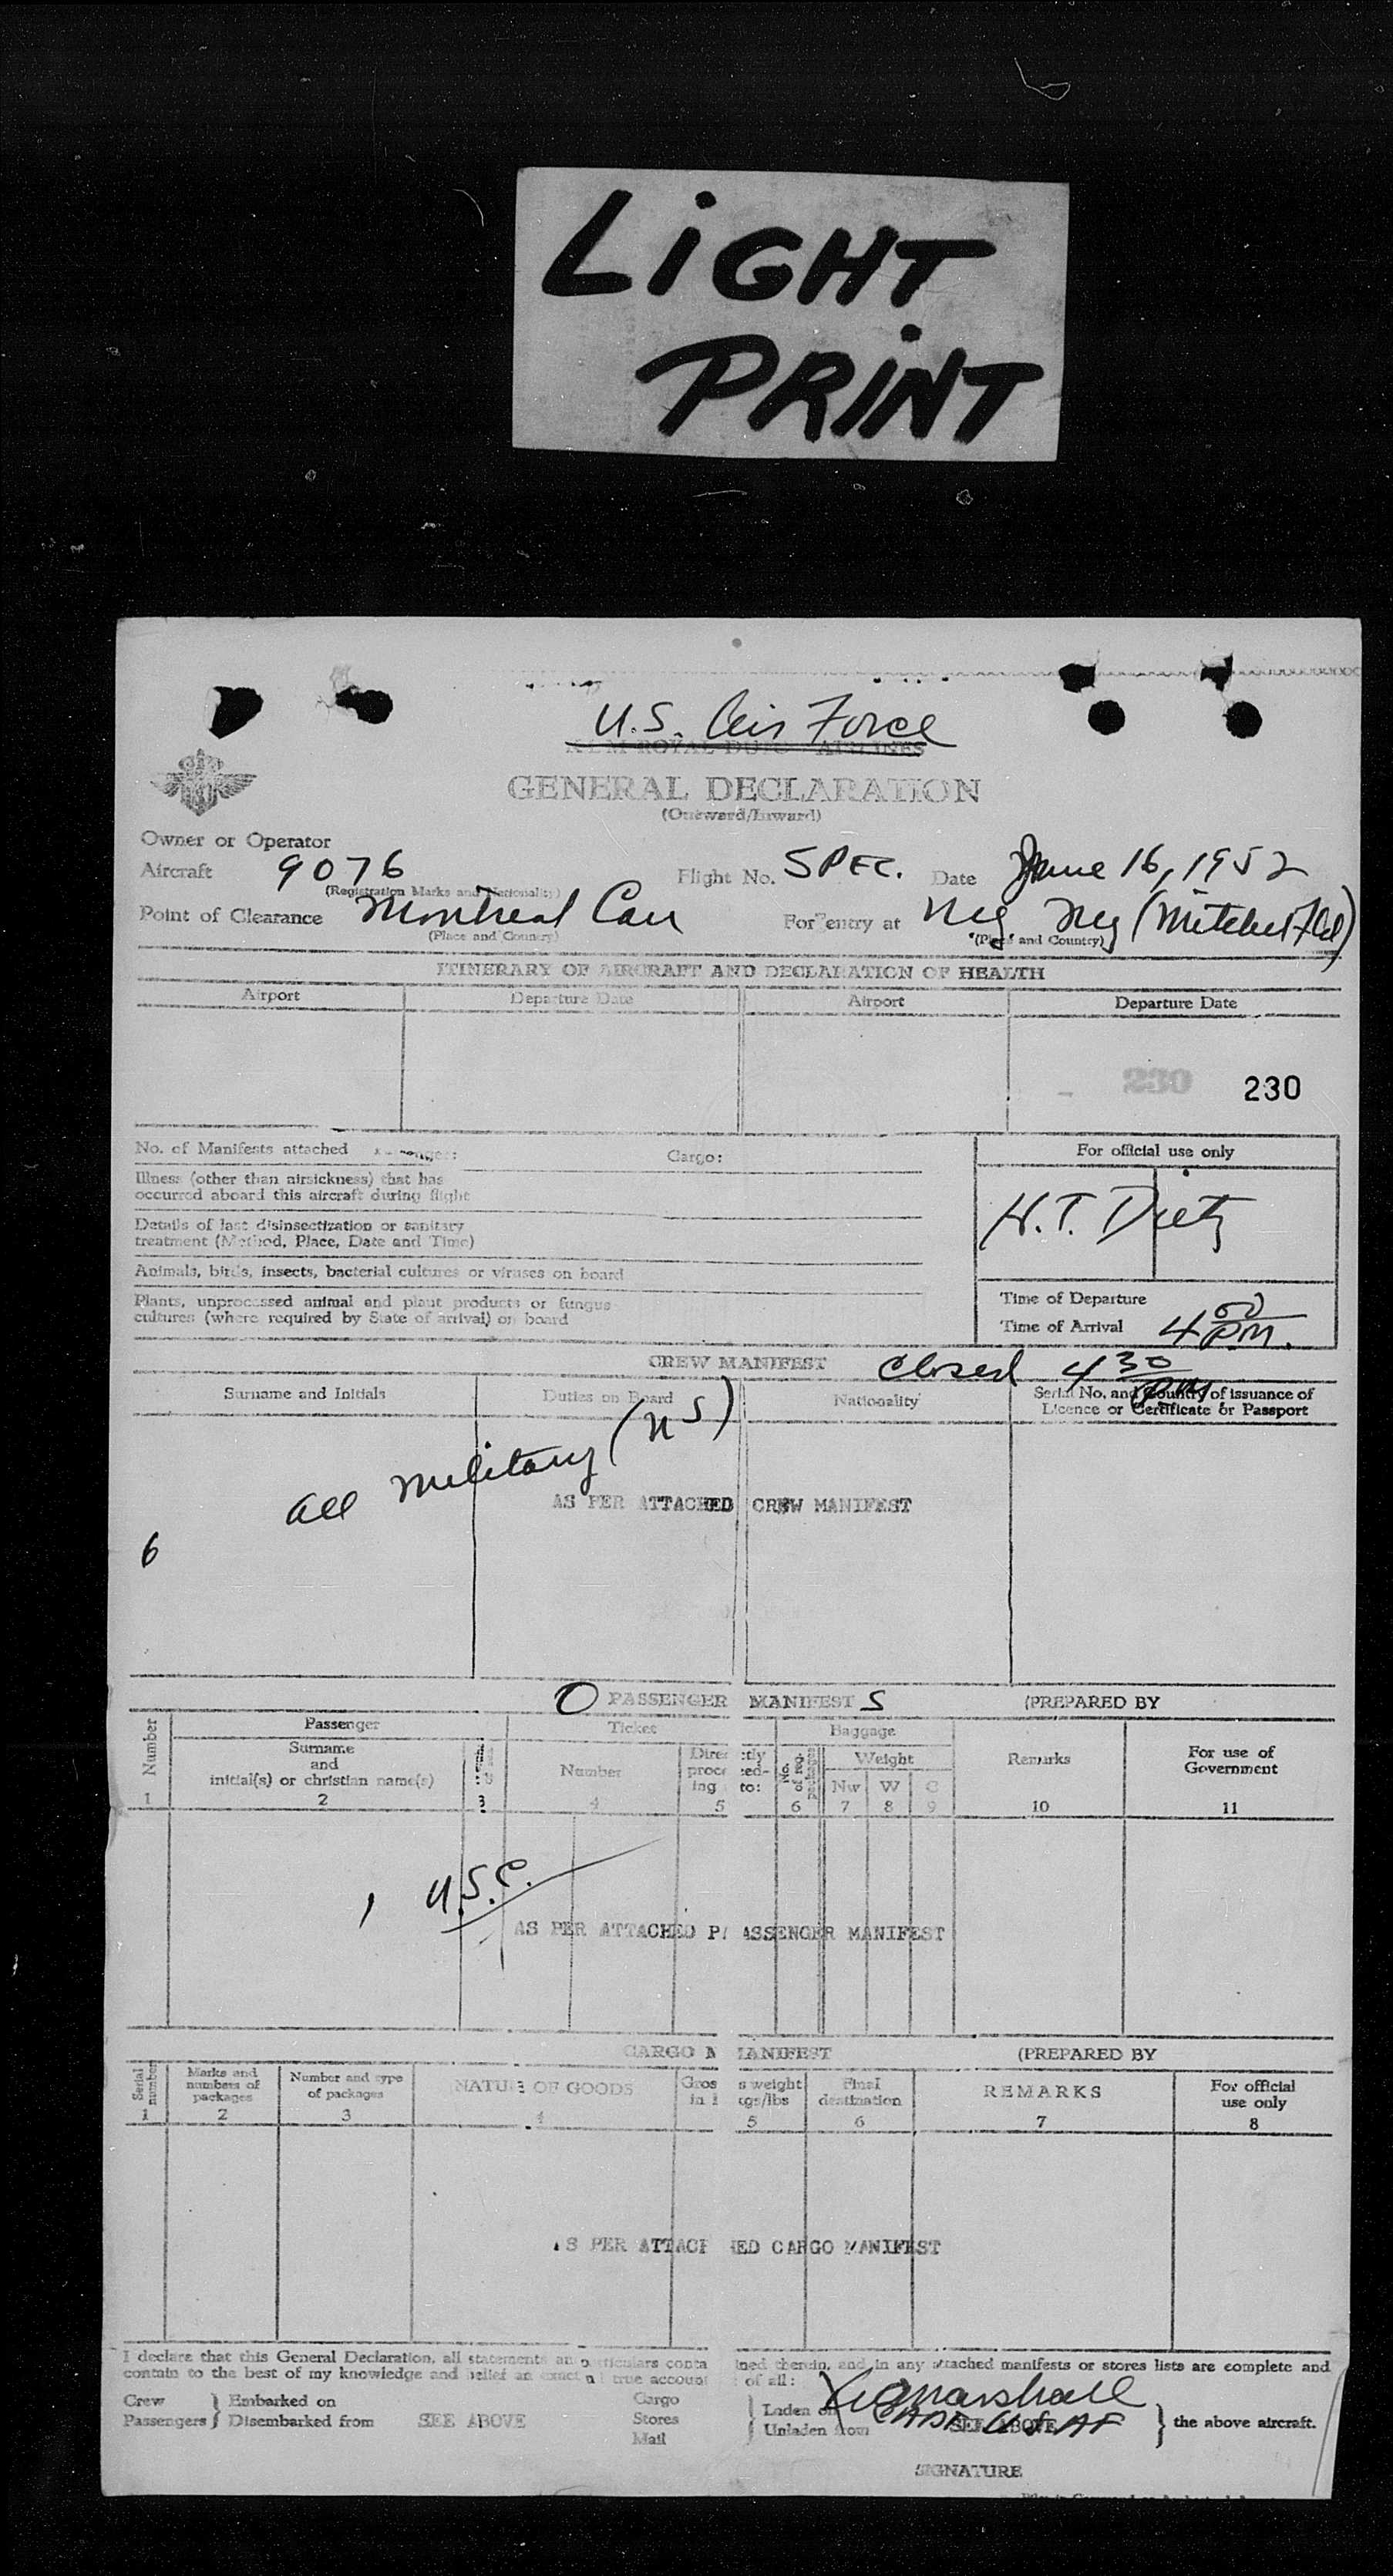 LiGHT
PRINT
U.S. Air Force
KLM ROYAL DUTCH AIRLINES
GENERAL DECLARATION
(Outward/Inward)
Owner or Operator
Aircraft 9076 Flight No. SPEC. Date June 16, 1952
(Registration Marks and Nationality)
Point of Clearance Montreal Can For entry at NY, NY (Mitchel Fld)
(Place and Country) (Place and Country)
ITINERARY OF AIRCRAFT AND DECLARATION OF HEALTH
Airport Departure Date Airport Departure Date
230 230
No. of Manifests attached Cargo:
For official use only
Illness (other than airsickness) that has
occurred aboard this aircraft during flight
H.T. Dietz
Details of last disinsectization or sanitary
treatment (Method, Place, Date and Time)
Animals, birds, insects, bacterial cultures or viruses on board
Plants, unprocessed animal and plant products or fungus
cultures (where required by State of arrival) on board
Time of Departure
Time of Arrival 4 00 P.M.
CREW MANIFEST Closed 4 30 pm
Surname and Initials Duties on Board Nationality Serial No. and Country of issuance of
Licence or Certificate or Passport
all military (US)
AS PER ATTACHED CREW MANIFEST
6
0 PASSENGER MANIFEST S (PREPARED BY
Number Passenger Ticket Baggage
Surname
and
initial(s) or christian name(s)
Number Directly
proceed-
ing to:
No. of reg. packages Weight Remarks For use of
Government
Nw W C
1 2 3 4 5 6 7 8 9 10 11
1 U.S.C.
AS PER ATTACHED PASSENGER MANIFEST
CARGO MANIFEST (PREPARED BY
Serial number Marks and
numbers of
packages
Number and type
of packages
NATURE OF GOODS Gross weight
in kgs/lbs
Final
destination
REMARKS For official
use only
1 2 3 4 5 6 7 8
AS PER ATTACHED CARGO MANIFEST
I declare that this General Declaration, all statements and particulars contained therein, and in any attached manifests or stores lists are complete and
contain to the best of my knowledge and belief an exact and true account of all:
Crew
Passengers
Embarked on
Disembarked from SEE ABOVE
Cargo
Stores
Mail
Laden on
Unladen from SEE ABOVE
Marshall
USAF
the above aircraft.
SIGNATURE